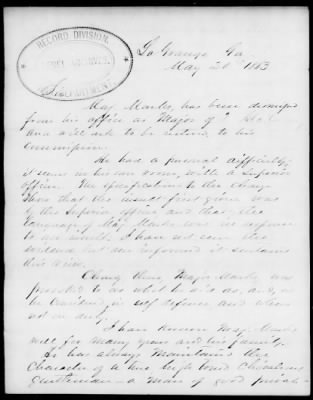 RECORD DIVISION
REBEL ARCHIVES
WAR DEPARTMENT
LaGrange Ga
May 20th 1863
Sir
Maj. Marks, has been dismissed
from his office as Major of
and will ask to be restored to his
commission.
He had a personal difficulty,
it seems in his own room, with a superior
officer. The specifications to the charge
show that the insult first given was
by the superior officer and that the
language of Maj. Marks was in response
to an insult. I have not seen the
evidence but am informed it sustains
this view.
Major Marks, was
provoked to do what he did do, and, as
he considered, in self defence and when
not on duty.
I have known Maj. Marks
well for many years and his family.
He has always maintained the
Character of a true high toned Chivalrous
Gentleman - a man of good private